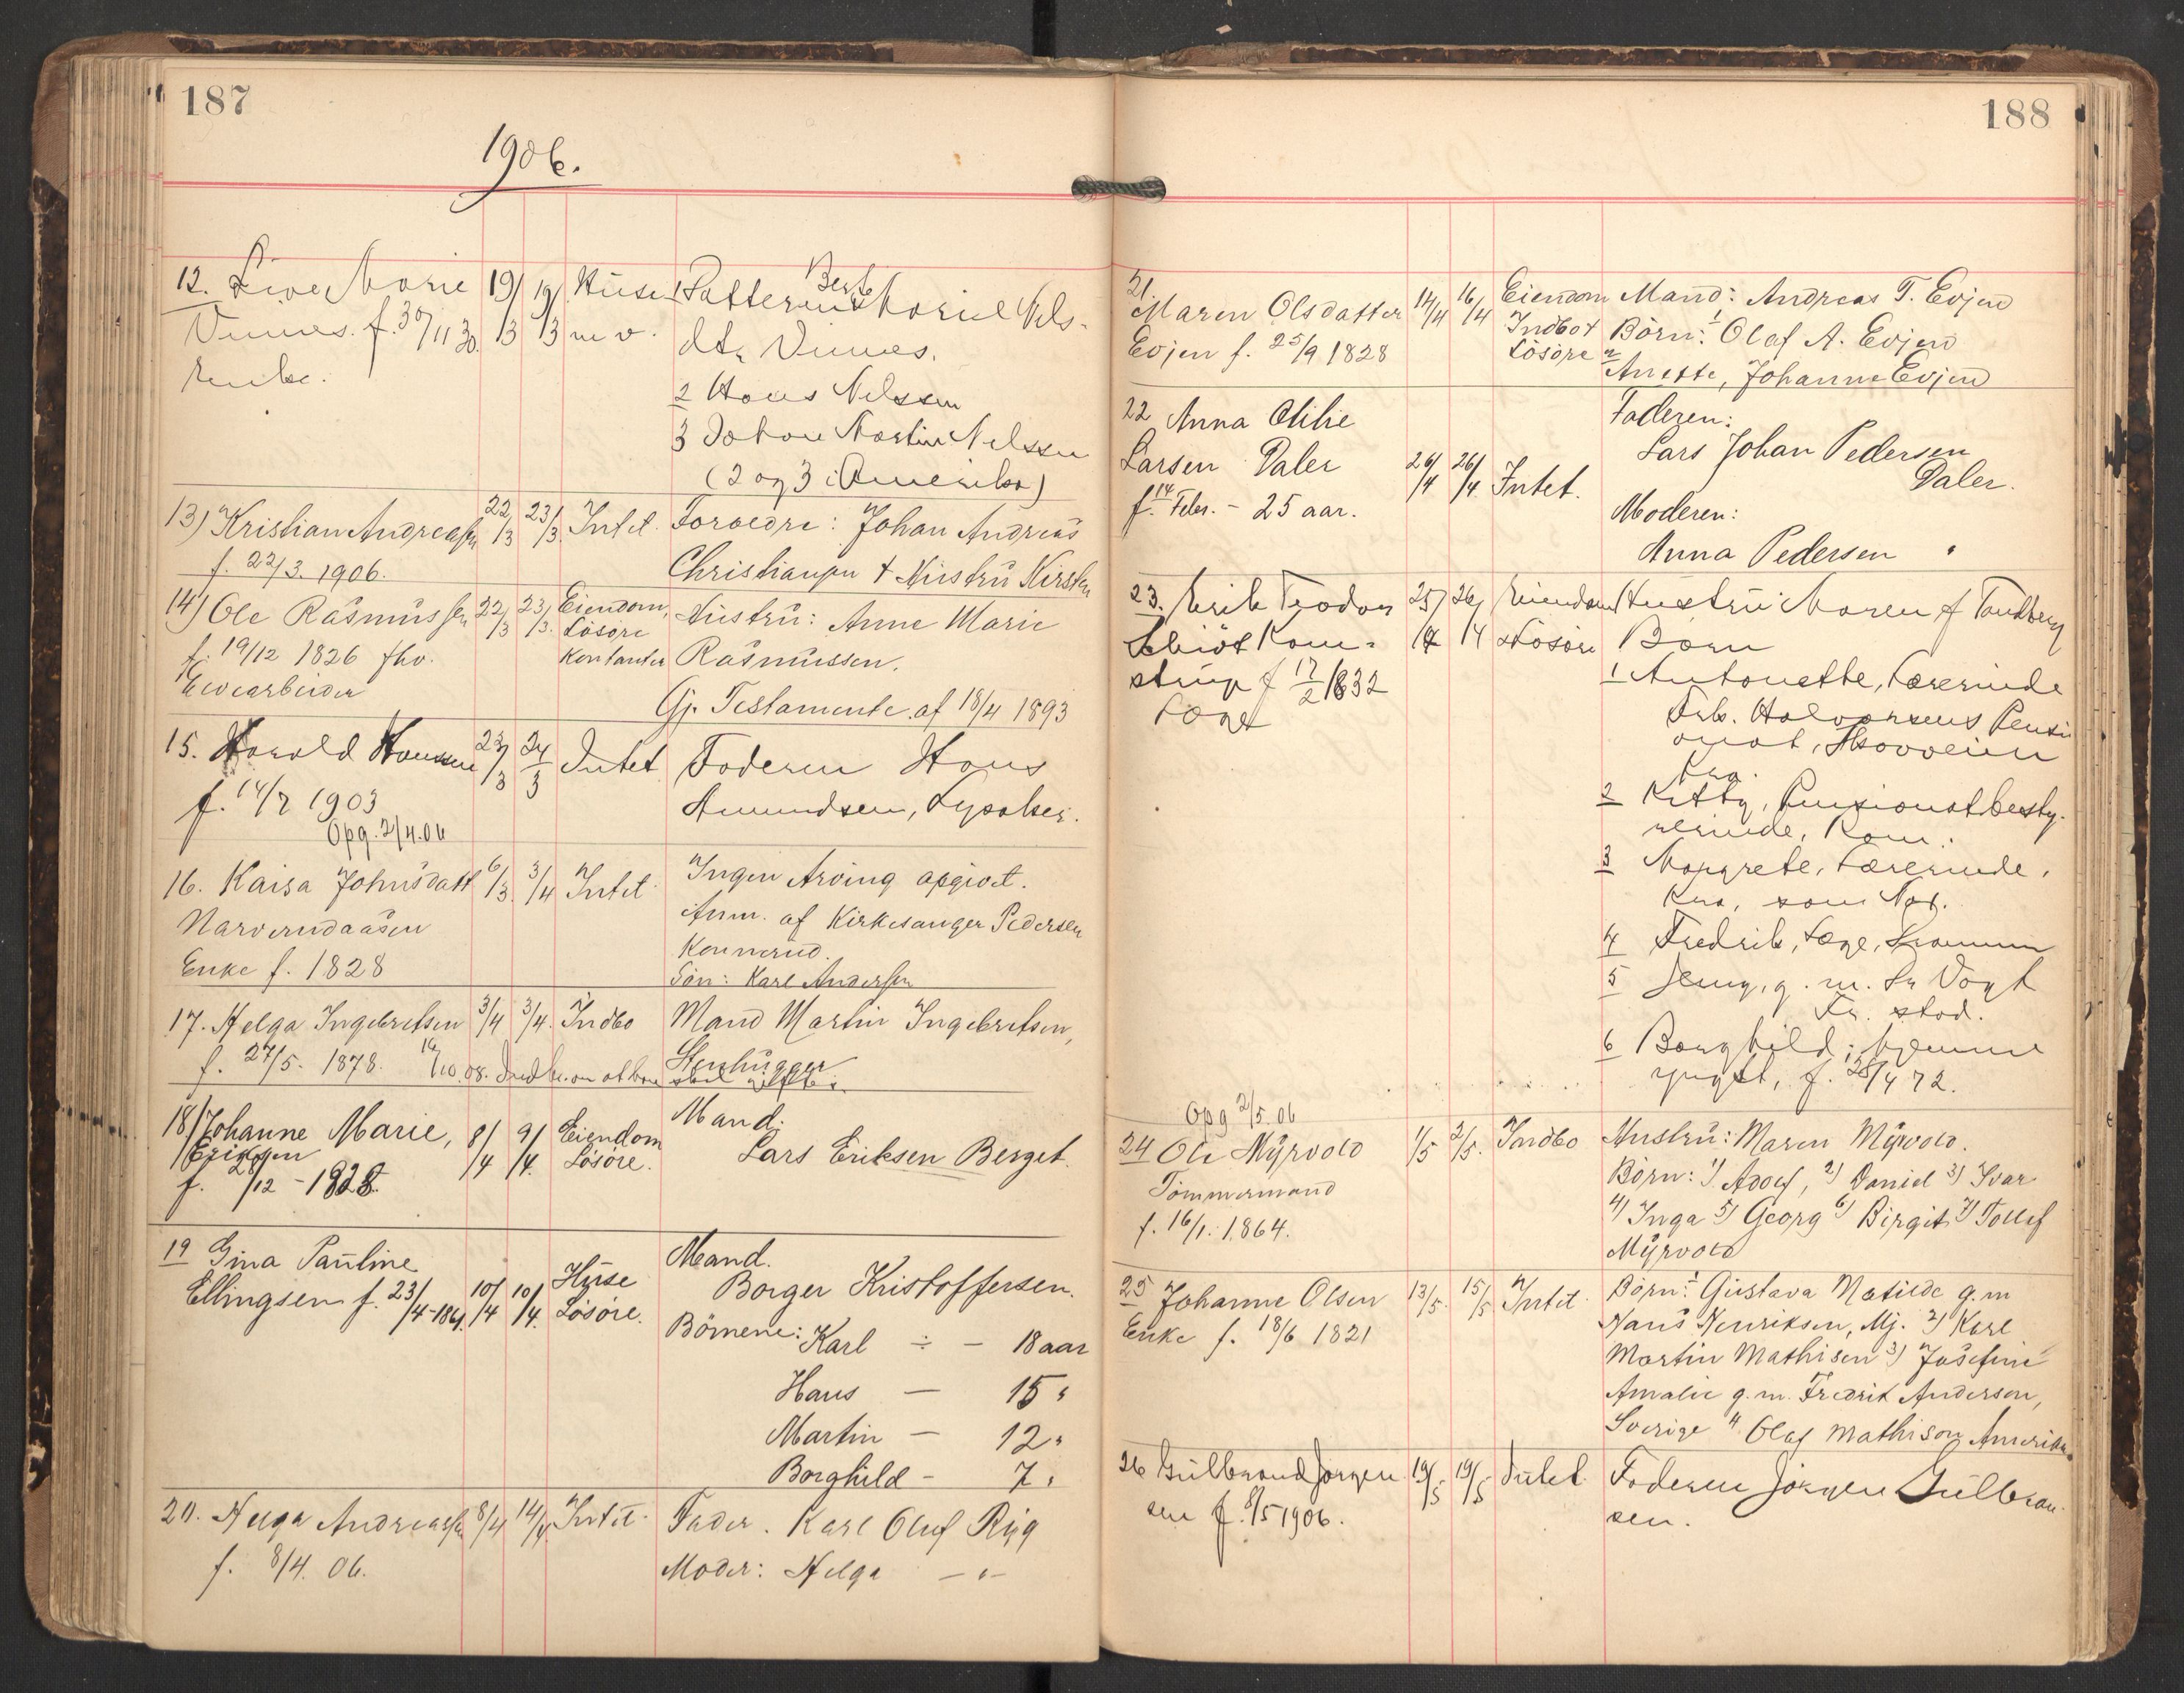 187
1906.
12. Live Marie 19/3 19/3 Huse Datteren Berte Marie Nels-
Vinnes. f. 30/11 30. m v. dtr Vinnes.
Enke.
2 Hans Nelssen
3 Johan Martin Nelssen
(2 og 3 i Amerika)
13) Kristian Andreassen 22/3 23/3. Intet. Foræedre: Johan Andreas
f. 22/3. 1906. Christiansen + Hustru Kirsten
14) Ole Rasmussen 22/3 23/3. Eiendom, Hustru: Anne Marie
f. 19/12 1826 fhv. Lösöre Rasmussen.
Elvearbeider Kontanter
Gj. Testamente af 18/4 1893
15. Harald Hansen 23/3 24/3 Intet Faderen Hans
f. 14/7 1903 Amundsen,
Opg. 2/4.06
16. Kaisa Johnsdatt 6/3. 3/4 Intet Ingen Arving opgivet.
Narverudaasen Anm. af Kirkesanger Pedersen
Konnerud.
Enke f. 1828 Sön: Karl Andersen
17. Helga Ingebretsen 3/4 3/4. Indbo Mand Martin Ingebretsen,
f. 27/5. 1878. Stenhugger
18/ Johanne Marie, 8/4 9/4. Eiendom Mand.
Eriksen Lösöre. Lars Eriksen Berget.
f. 28/12 - 1828.
19 Gina Pauline Mand.
Ellingsen f. 23/4-1861. 10/4 10/4. Huse Borger Kristoffersen.
Lösöre. Börnene: Karl ÷ - 18 aar
Hans — 15 "
Martin — 12 "
Borghild - 7 "
20. Helga Andreassen 8/4 14/4. Intet. Fader. Karl Oluf Ryg
f. 8/4. 06. Moder: Helga — " —
188
21. Maren Olsdatter 14/4 16/4 Eiendom Mand: Andreas T. Evjen
Evjen f. 25/9 1828 Indbo + Börn: 1 Olaf A. Evjen
Lösöre 2 Anette, Johanne Evjen
22 Anna Otilie Faderen:
Larsen Daler 26/4 26/4 Intet. Lars Johan Pedersen
Daler.
f. 14 Febr. - 25 aar. Moderen:
Anna Pedersen "
23. Erik Teodor 25/4 26/4 Eiendom Hustru Maren f Tandberg
Schiöt Kom- + Lösöre Börn
strup f 17/2 1832 1 Antonette, Lærerinde
Læge Frk. Halvorsens Pensi
onat,
Kra.
2 Kitty, Pensionatbesty-
rerinde, Kra.
3 Margrete, Lærerinde,
Kra, som No 1.
4 Fredrik, Læge, Drammen
5 Jenny, g. m. Dr Vogt
Fr. stad.
6 Borghild; hjemme
yngst, f. 28/4 72.
Opg 2/5.06
24 Ole Myrvold 1/5 2/5. Indbo Hustru: Maren Myrvold.
Tömmermand Börn: 1) Adolf, 2) Daniel 3) Ivar
f. 16/1. 1864. 4) Inga 5) Georg 6) Birgit 7) Tollef
Myrvold
25 Johanne Olsen 13/5. 15/5 Intet. Börn: 1 Gustava Matilde g.m
Enke f. 18/6 1821 Hans Henriksen, Mj. 2) Karl
Martin Mathisen 3) Josefine
Amalie g.m. Fredrik Anderson,
Sverige 4 Olaf Mathison Amerika.
26 Gulbrand Jörgen 19/5 19/5 Intet. Faderen Jörgen Gulbran
sen f. 8/5 1906. sen.